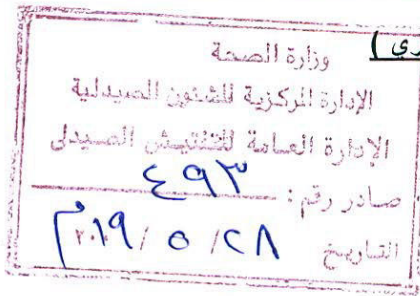 ري )
وزارة الصحة
الإدارة المركزية للشئون الصيدلية
الإدارة العامة للتفتيش الصيدلى
صادر رقم : ٤٩٣
التاريخ ٢٨/ ٥ / ٢٠١٩م